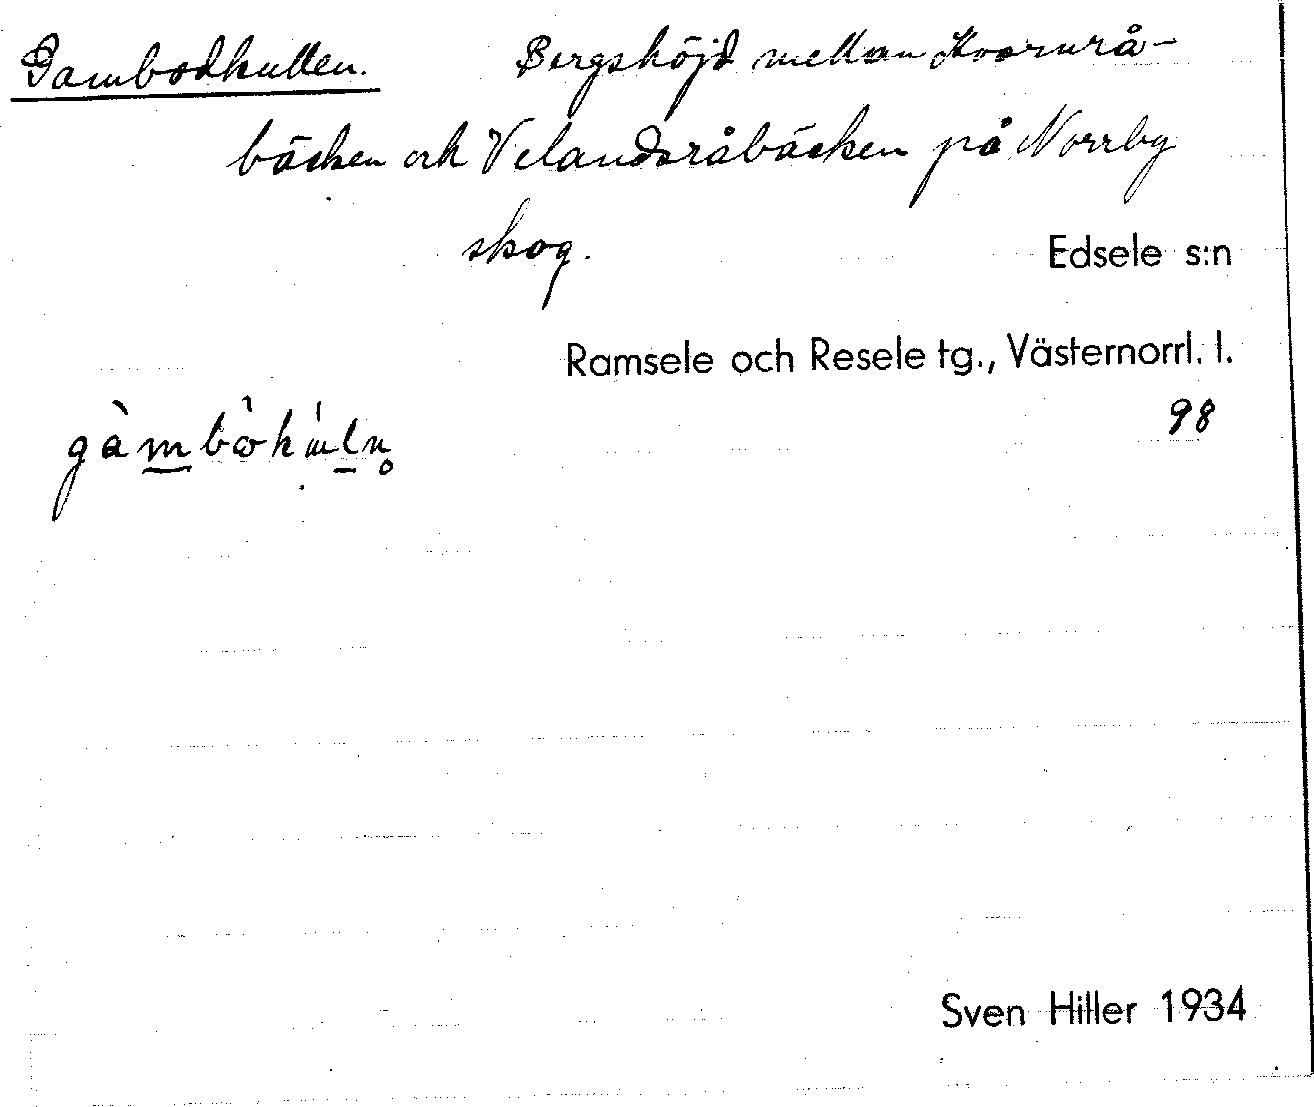 Gambodkullen. Bergshöjd mellan Kvarnrå-
bäcken och Velandsråbäcken på Norrby
skog.
Edsele s:n
Ramsele och Resele tg., Västernorrl. l.
98
Sven Hiller 1934